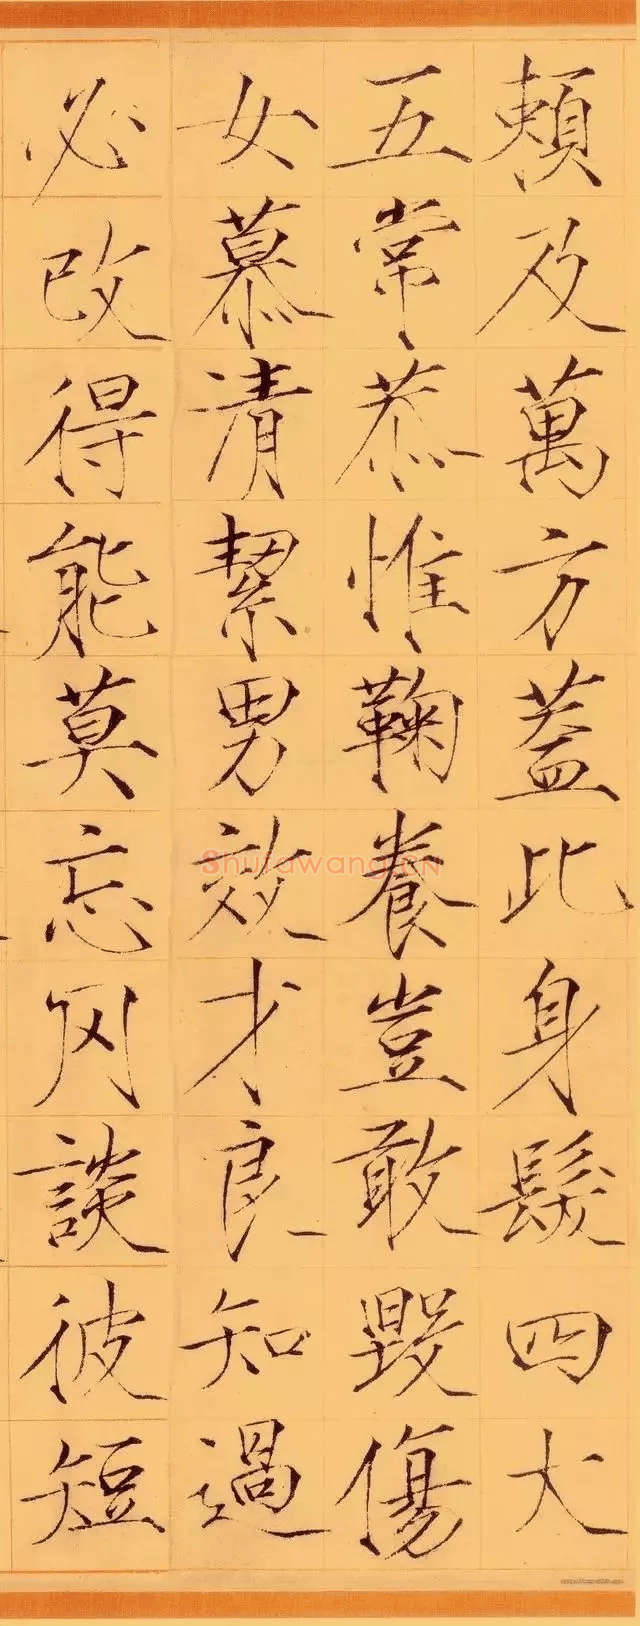 頼及萬方蓋此身髮四大
五常恭惟鞠養豈敢毀傷
女慕清絜男效才良知過
必改得能莫忘罔談彼短
Shufawang.CN